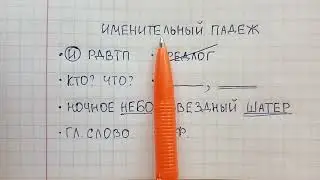 ИМЕНИТЕЛЬНЫЙ ПАДЕЖ
• И РДВТП • ПРЕДЛОГ
• КТО? ЧТО? • ____, ____
• НОЧНОЕ НЕБО ВЕЗДНЫЙ ШАТЕР
• ГЛ. СЛОВО Ф.